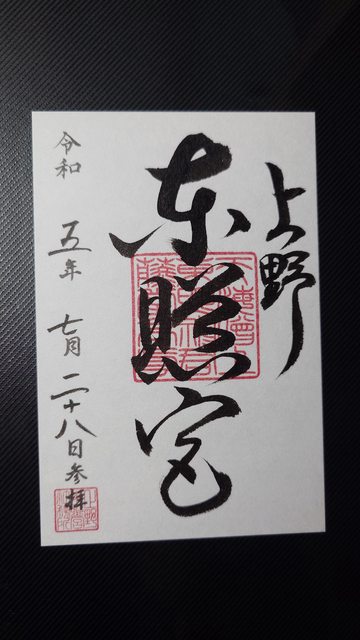 上野
東照宮
令和 五年 七月 二十八日参拝